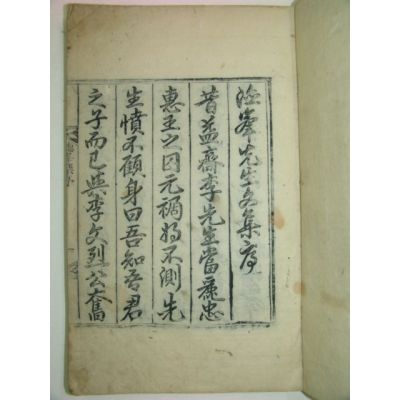 峯先生文集序
昔益齋李先生當麗忠
惠王之囚元禍將不測先
生憤不顧身曰吾知吾君
之子而已與李文烈公奮